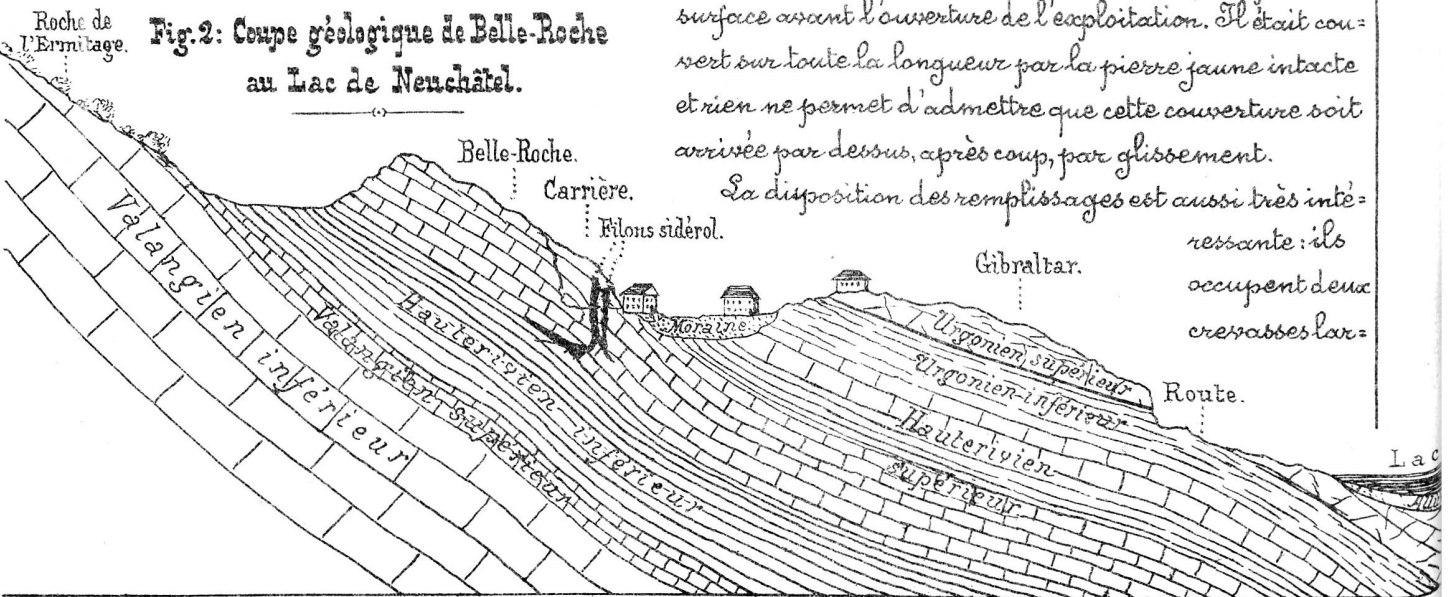 Roche de
l'Ermitage.
Fig. 2: Coupe géologique de Belle-Roche
au Lac de Neuchâtel.
surface avant l'ouverture de l'exploitation. Il était cou=
vert sur toute la longueur par la pierre jaune intacte
et rien ne permet d'admettre que cette couverture soit
arrivée par dessus, après coup, par glissement.
La disposition des remplissages est aussi très inté=
ressante: ils
occupent deux
crevasses lar=
Belle-Roche.
Carrière.
Filons sidérol.
Gibraltar.
Moraine
Route.
Lac
Valangien inférieur
Valangien supérieur
Hauterivien inférieur
Hauterivien
supérieur
Urgonien inférieur
Urgonien supérieur